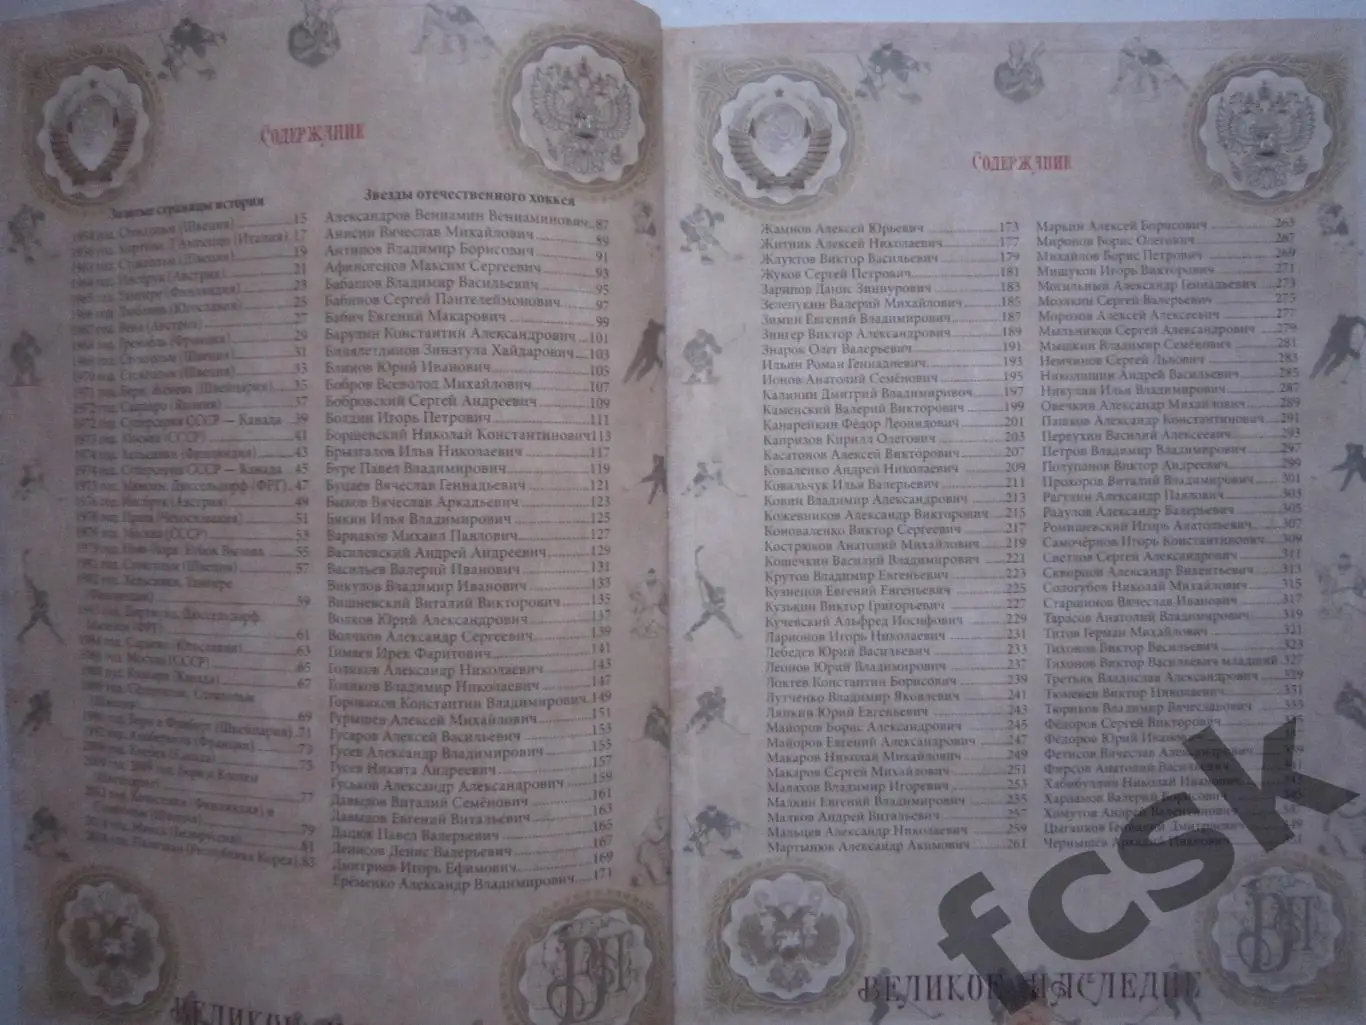 Содержание
Золотые страницы истории
1954 год. Стокгольм (Швеция) 15
1956 год. Кортина Д'Ампеццо (Италия) 17
1963 год. Стокгольм (Швеция) 19
1964 год. Инсбрук (Австрия) 21
1965 год. Тампере (Финляндия) 23
1966 год. Любляна (Югославия) 25
1967 год. Вена (Австрия) 27
1968 год. Гренобль (Франция) 29
1969 год. Стокгольм (Швеция) 31
1970 год. Стокгольм (Швеция) 33
1971 год. Берн, Женева (Швейцария) 35
1972 год. Саппоро (Япония) 37
1972 год. Суперсерия СССР — Канада 39
1973 год. Москва (СССР) 41
1974 год. Хельсинки (Финляндия) 43
1974 год. Суперсерия СССР — Канада 45
1975 год. Мюнхен, Дюссельдорф (ФРГ) 47
1976 год. Инсбрук (Австрия) 49
1978 год. Прага (Чехословакия) 51
1979 год. Москва (СССР) 53
1979 год. Нью-Йорк. Кубок Вызова 55
1981 год. Стокгольм (Швеция) 57
1982 год. Хельсинки, Тампере
(Финляндия) 59
год. Дортмунд, Дюссельдорф,
Мюнхен (ФРГ) 61
1984 год. Сараево (Югославия) 63
1986 год. Москва (СССР) 65
1988 год. Калгари (Канада) 67
1989 год. Стокгольм,
(Швеция) 69
1990 год. Берн и Фрибург (Швейцария) 71
1992 год. Альбервиль (Франция) 73
2008 год. Квебек (Канада) 75
2009 год. Берн и Клотен
(Швейцария) 77
2012 год. Хельсинки (Финляндия) и
Стокгольм (Швеция) 79
2014 год. Минск (Белоруссия) 81
2018 год. Пхенчхан (Республика Корея) 83
Звезды отечественного хоккея
Александров Вениамин Вениаминович 87
Анисин Вячеслав Михайлович 89
Антипов Владимир Борисович 91
Афиногенов Максим Сергеевич 93
Бабашов Владимир Васильевич 95
Бабинов Сергей Пантелеймонович 97
Бабич Евгений Макарович 99
Барулин Константин Александрович 101
Билялетдинов Зинэтула Хайдарович 103
Блинов Юрий Иванович 105
Бобров Всеволод Михайлович 107
Бобровский Сергей Андреевич 109
Болдин Игорь Петрович 111
Борщевский Николай Константинович 113
Брызгалов Илья Николаевич 117
Буре Павел Владимирович 119
Буцаев Вячеслав Геннадьевич 121
Быков Вячеслав Аркадьевич 123
Бякин Илья Владимирович 125
Варнаков Михаил Павлович 127
Василевский Андрей Андреевич 129
Васильев Валерий Иванович 131
Викулов Владимир Иванович 133
Вишневский Виталий Викторович 135
Волков Юрий Александрович 137
Волчков Александр Сергеевич 139
Гимаев Ирек Фаритович 141
Голиков Александр Николаевич 143
Голиков Владимир Николаевич 147
Горовиков Константин Владимирович 149
Гурышев Алексей Михайлович 151
Гусаров Алексей Васильевич 153
Гусев Александр Владимирович 155
Гусев Никита Андреевич 157
Гуськов Александр Александрович 159
Давыдов Виталий Семёнович 161
Давыдов Евгений Витальевич 163
Дацюк Павел Валерьевич 165
Денисов Денис Валерьевич 167
Дмитриев Игорь Ефимович 169
Еременко Александр Владимирович 171
Великое
Содержание
Жамнов Алексей Юрьевич 173
Житник Алексей Николаевич 177
Жлуктов Виктор Васильевич 179
Жуков Сергей Петрович 181
Зарипов Данис Зиннурович 183
Зелепукин Валерий Михайлович 185
Зимин Евгений Владимирович 187
Зингер Виктор Александрович 189
Знарок Олег Валерьевич 191
Ильин Роман Геннадиевич 193
Ионов Анатолий Семёнович 195
Калинин Дмитрий Владимирович 197
Каменский Валерий Викторович 199
Канарейкин Фёдор Леонидович 201
Капризов Кирилл Олегович 203
Касатонов Алексей Викторович 207
Коваленко Андрей Николаевич 209
Ковальчук Илья Валерьевич 211
Ковин Владимир Александрович 213
Кожевников Александр Викторович 215
Коноваленко Виктор Сергеевич 217
Кострюков Анатолий Михайлович 219
Кошечкин Василий Владимирович 221
Крутов Владимир Евгеньевич 223
Кузнецов Евгений Евгеньевич 225
Кузькин Виктор Григорьевич 227
Кучейский Альфред Иосифович 229
Ларионов Игорь Николаевич 231
Лебедев Юрий Васильевич 233
Леонов Юрий Владимирович 237
Локтев Константин Борисович 239
Лутченко Владимир Яковлевич 241
Ляпкин Юрий Евгеньевич 243
Майоров Борис Александрович 245
Майоров Евгений Александрович 247
Макаров Николай Михайлович 249
Макаров Сергей Михайлович 251
Малахов Владимир Игоревич 253
Малкин Евгений Владимирович 255
Малков Андрей Витальевич 257
Мальцев Александр Николаевич 259
Мартынюк Александр Акимович 261
Марьин Алексей Борисович 265
Миронов Борис Олегович 267
Михайлов Борис Петрович 269
Мишуков Игорь Викторович 271
Могильный Александр Геннадьевич 273
Мозякин Сергей Валерьевич 275
Морозов Алексей Алексеевич 277
Мыльников Сергей Александрович 279
Мышкин Владимир Семёнович 281
Немчинов Сергей Львович 283
Николишин Андрей Васильевич 285
Никулин Илья Владимирович 287
Овечкин Александр Михайлович 289
Пашков Александр Константинович 291
Первухин Василий Алексеевич 293
Петров Владимир Владимирович 297
Полупанов Виктор Андреевич 299
Прохоров Виталий Владимирович 301
Рагулин Александр Павлович 303
Радулов Александр Валерьевич 305
Ромишевский Игорь Анатольевич 307
Самочёрнов Игорь Константинович 309
Светлов Сергей Александрович 311
Скворцов Александр Викентьевич 313
Сологубов Николай Михайлович 315
Старшинов Вячеслав Иванович 317
Тарасов Анатолий Владимирович 319
Титов Герман Михайлович 321
Тихонов Виктор Васильевич 323
Тихонов Виктор Васильевич младший 327
Третьяк Владислав Александрович 329
Тюменев Виктор Николаевич 331
Тюриков Владимир Вячеславович 333
Фёдоров Сергей Викторович
Фёдоров Юрий Иванович
Фетисов Вячеслав Александрович
Фирсов Анатолий Васильевич
Хабибулин Николай Иванович
Харламов Валерий Борисович
Хомутов Андрей Валентинович
Цыганков Геннадий Дмитриевич
Чернышев Аркадий Иванович
Великое Наследие
ВН
fcsk